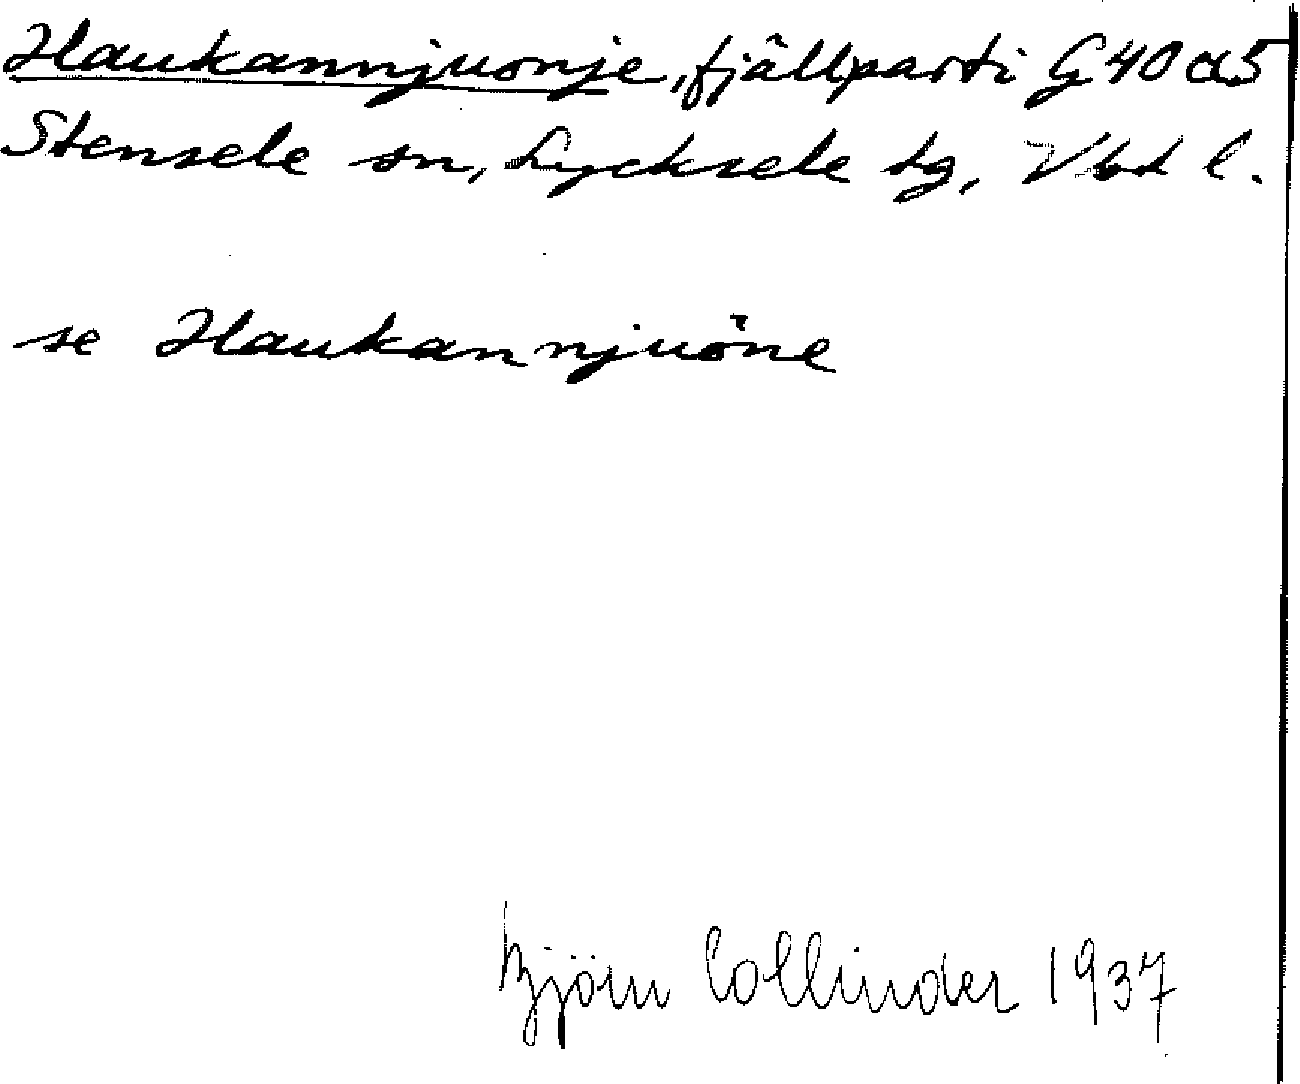 Haukannjuonje, fjällparti G 40 d5
Stensele sn, Lycksele tg, Vbd l.
se Haukannjuöne
Björn Collinder 1937